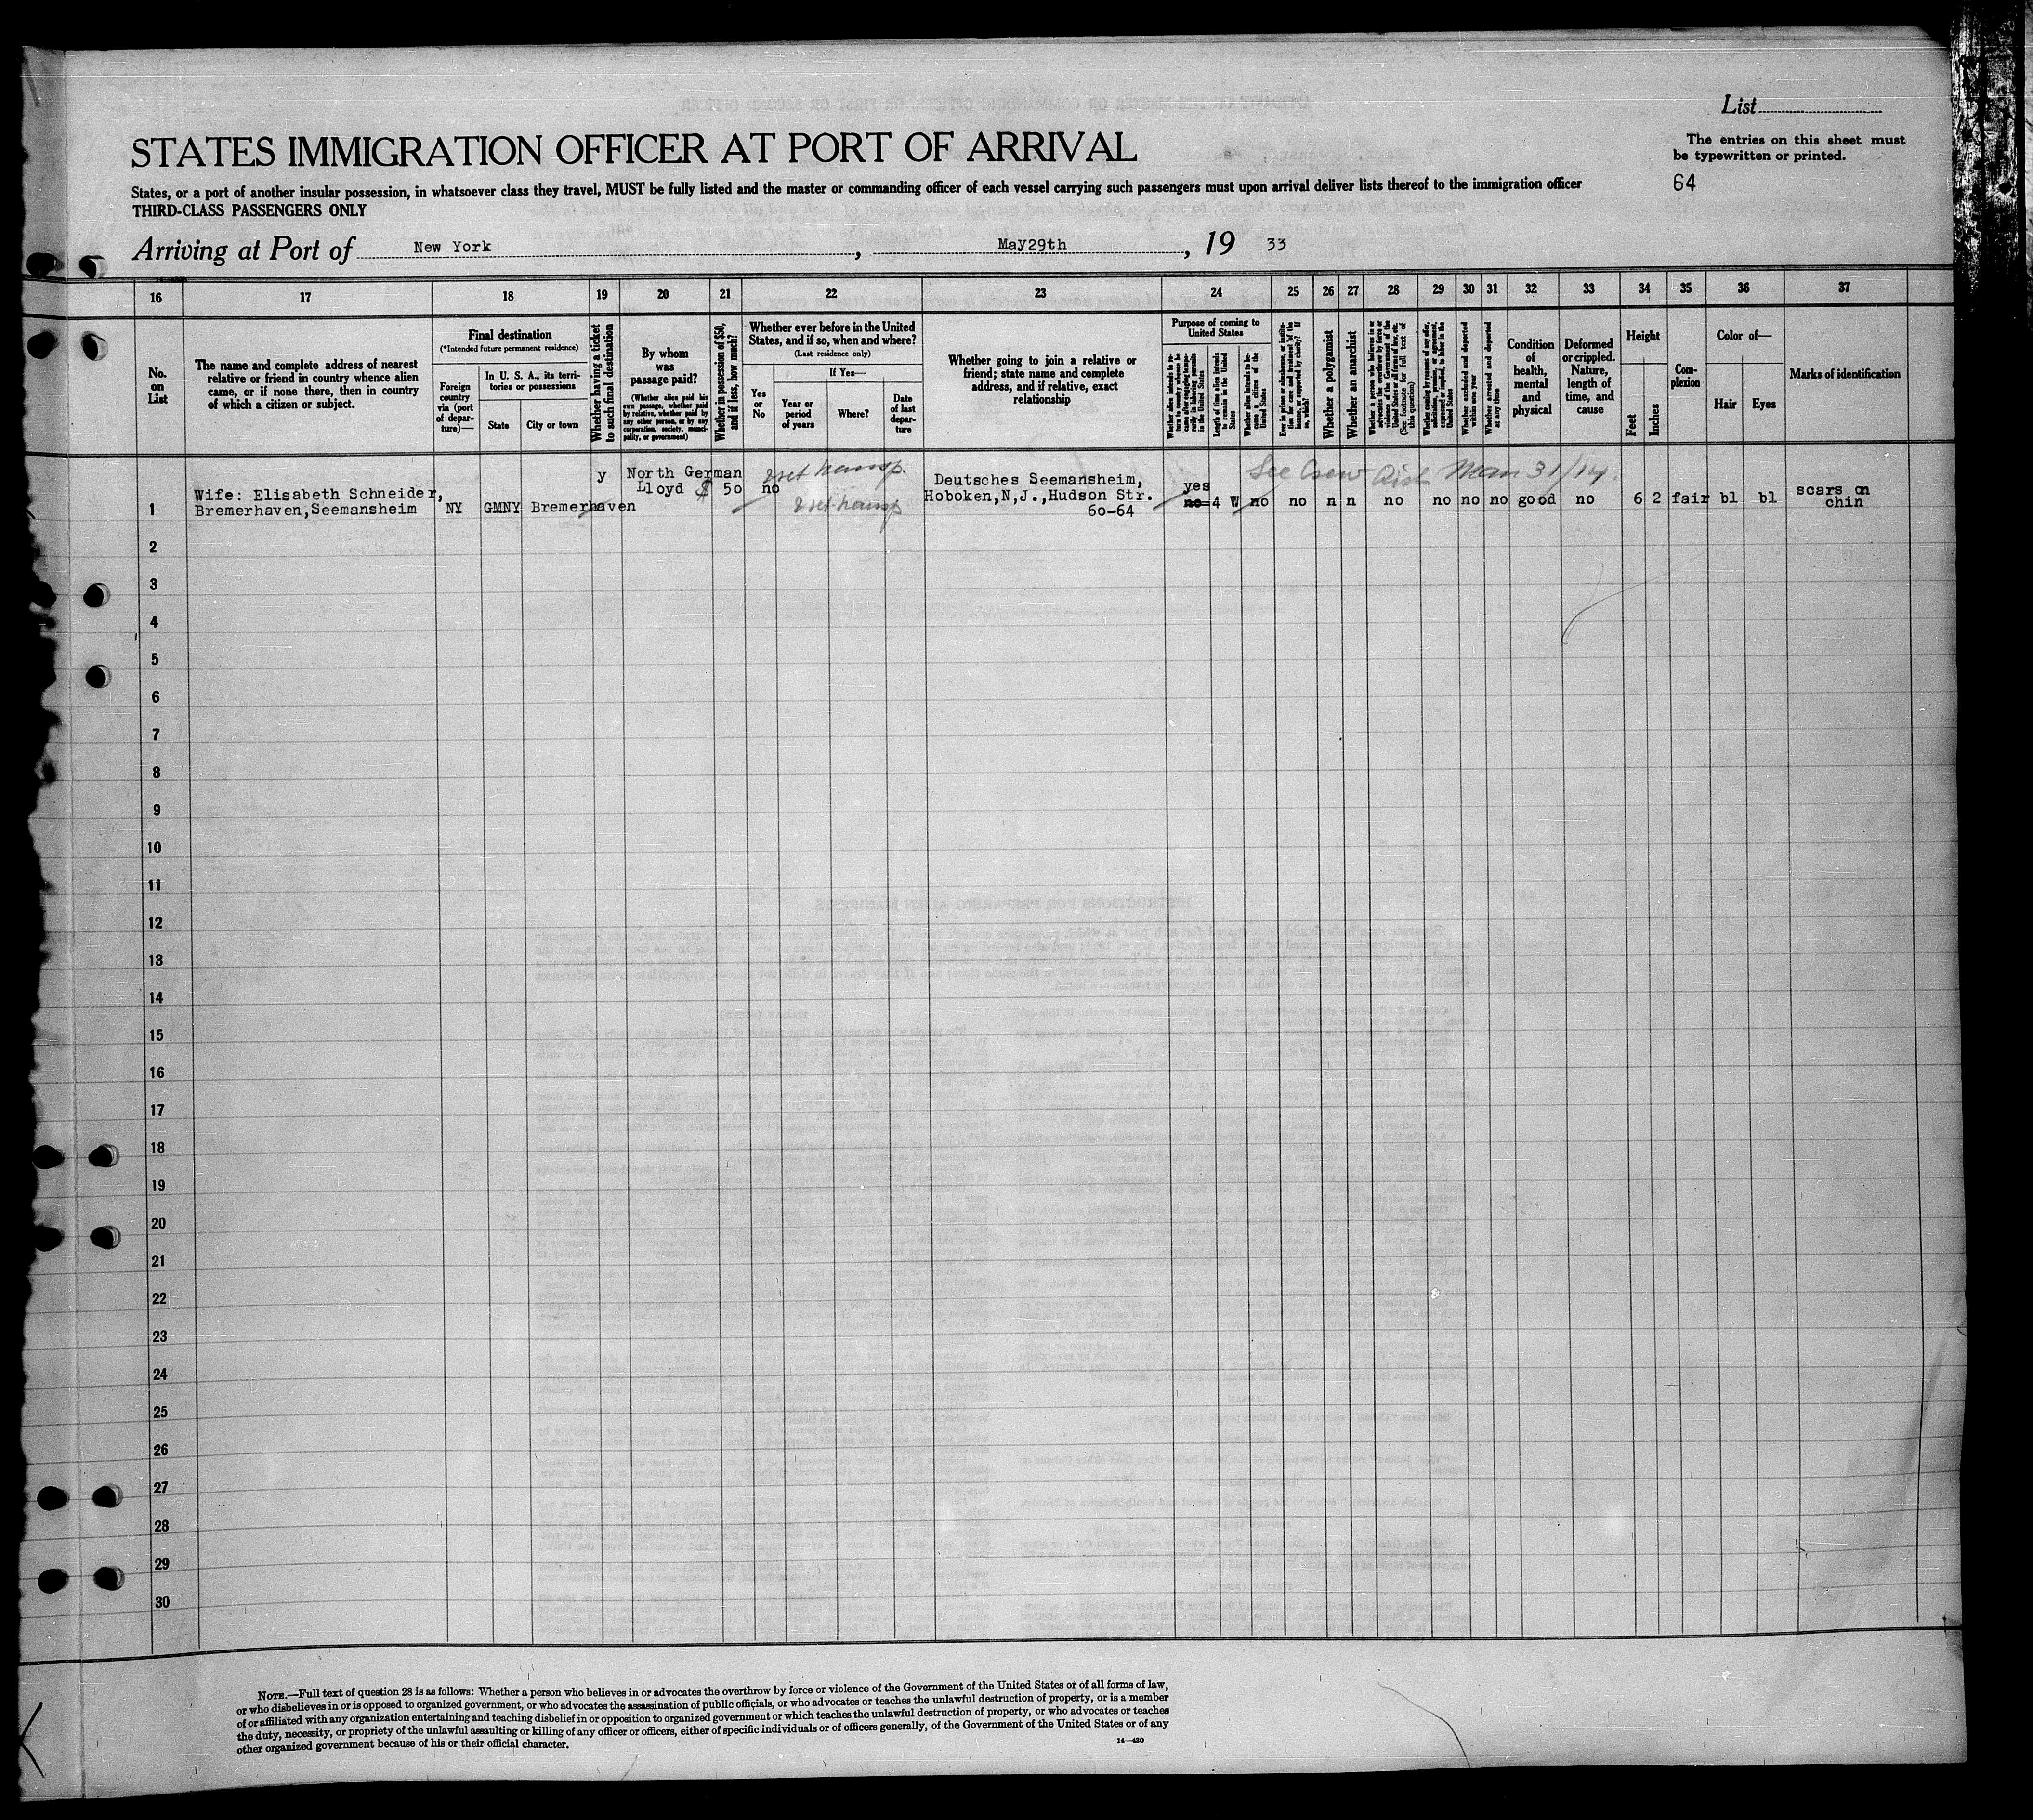 List
STATES IMMIGRATION OFFICER AT PORT OF ARRIVAL
The entries on this sheet must
be typewritten or printed.
64
States, or a port of another insular possession, in whatsoever class they travel, MUST be fully listed and the master or commanding officer of each vessel carrying such passengers must upon arrival deliver lists thereof to the immigration officer
THIRD-CLASS PASSENGERS ONLY
Arriving at Port of New York, May29th, 19 33
16 17 18 19 20 21 22 23 24 25 26 27 28 29 30 31 32 33 34 35 36 37
No.
on
List
The name and complete address of nearest
relative or friend in country whence alien
came, or if none there, then in country
of which a citizen or subject.
Final destination
(*Intended future permanent residence)
Foreign
country
via (port
of depar-
ture)—
In U. S. A., its terri-
tories or possessions
State
City or town
Whether having a ticket
to such final destination
By whom
was
passage paid?
(Whether alien paid his
own passage, whether paid
by relative, whether paid by
any other person, or by any
corporation, society, munici-
pality, or government)
Whether in possession of $50,
and if less, how much?
Whether ever before in the United
States, and if so, when and where?
(Last residence only)
Yes
or
No
If Yes—
Year or
period
of years
Where?
Date
of last
depar-
ture
Whether going to join a relative or
friend; state name and complete
address, and if relative, exact
relationship
Purpose of coming to
United States
Whether alien intends to re-
turn to country whence he
came after engaging tempo-
rarily in laboring pursuits
in the United States
Length of time alien intends
to remain in the United
States
Whether alien intends to be-
come a citizen of the
United States
Ever in prison or almshouse, or institu-
tion for care and treatment of the
insane, or supported by charity? If
so, which?
Whether a polygamist
Whether an anarchist
Whether a person who believes in or
advocates the overthrow by force or
violence of the Government of the
United States or all forms of law, etc.
(See footnote for full text of
this question)
Whether coming by reason of any offer,
solicitation, promise, or agreement,
expressed or implied, to labor in the
United States
Whether excluded and deported
within one year
Whether arrested and deported
at any time
Condition
of
health,
mental
and
physical
Deformed
or crippled.
Nature,
length of
time, and
cause
Height
Feet
Inches
Com-
plexion
Color of—
Hair
Eyes
Marks of identification
See Crew List Man 31/14.
1 Wife: Elisabeth Schneider,
Bremerhaven,Seemansheim
NY GMNY Bremerhaven
y
North German
Lloyd $ 50 no
Deutsches Seemansheim,
Hoboken,N,J.,Hudson Str.
60-64
yes
no 4 W no no n n no no no no good no 6 2 fair bl bl
scars on
chin
2
3
4
5
6
7
8
9
10
11
12
13
14
15
16
17
18
19
20
21
22
23
24
25
26
27
28
29
30
NOTE.—Full text of question 28 is as follows: Whether a person who believes in or advocates the overthrow by force or violence of the Government of the United States or of all forms of law,
or who disbelieves in or is opposed to organized government, or who advocates the assassination of public officials, or who advocates or teaches the unlawful destruction of property, or is a member
of or affiliated with any organization entertaining and teaching disbelief in or opposition to organized government or which teaches the unlawful destruction of property, or who advocates or teaches
the duty, necessity, or propriety of the unlawful assaulting or killing of any officer or officers, either of specific individuals or of officers generally, of the Government of the United States or of any
other organized government because of his or their official character.
14—430